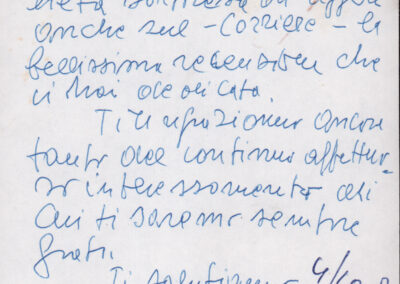 anche sul - Corriere - la
bellissima recensione che
ci hai dedicata.
Ti ringraziamo ancora
tanto del continuo affettuo-
so interessamento di
cui ti saremo sempre
grati.
Ti salutiamo